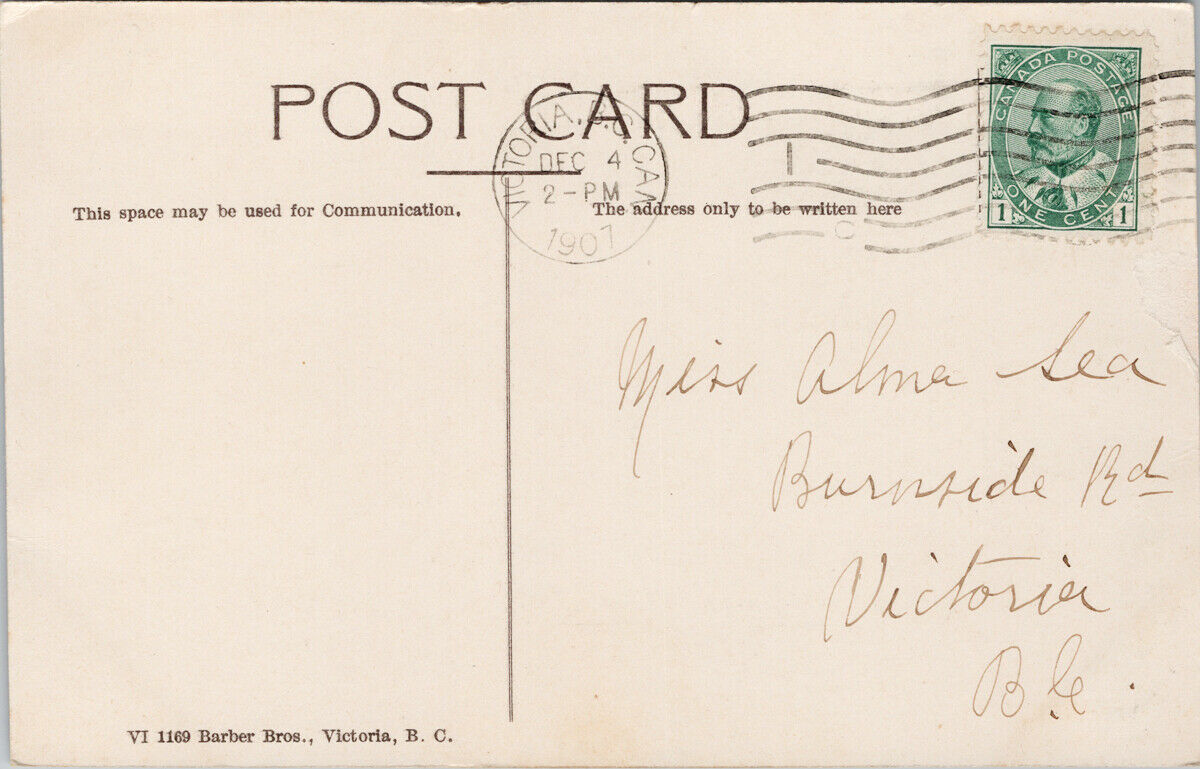 POST CARD
CANADA POSTAGE
1 ONE CENT 1
VICTORIA, B.C. CAN
DEC 4
2-PM
1907
This space may be used for Communication.
The address only to be written here
Miss Alma Lea
Burnside Rd
Victoria
B.C.
VI 1169 Barber Bros., Victoria, B. C.